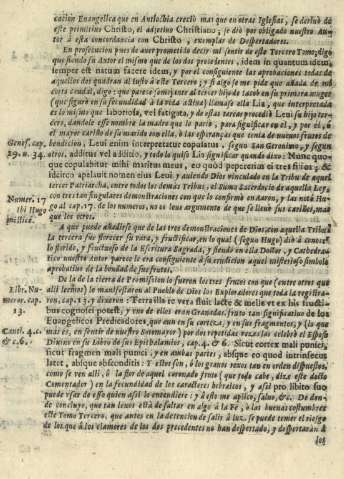 cacion Euangelica que en Antiochia creciò mas que en otras Iglesias, se deriuò de
este primitiuo Christo, el adjetiuo Christiano; se diò por obligado nuestro Au-
tor à esta concordancia con Christo, exemplar de Despertadores.
En prosecucion pues de auer prometido dezir mi sentir de este Tercero Tomo; digo
que siendo su Autor el mismo que de los dos precedentes, idem in quantum idem,
semper est natum facere idem, y por el consiguiente las aprobaciones todas de
aquellos dos quadran al justo à este Tercero; y si algo se me pide que añada de mi
corto caudal, digo: que parece semejante al tercer hijo de Iacob en su primera muger
(que figurò en su fecundidad à la vida actiua) llamase ella Lia, que interpretada
es lo mismo que laboriosa, vel fatigata, y de estas tercero procediò Leui su hijo ter-
cero, dandole esse nombre la madre que le pariò, para significar en el, y por el, el
el mayor cariño de su marido con ella, à las esperanças que tenia de nuevos frutos de
Genes. cap. bendicion, Leui enim interpretatur copulatus, segun San Geronymo, y segun
29. n. 34. otros, additus vel addictio, y todo lo quiso Lia significar quando dixo: Nunc quo-
que copulabitur mihi maritus meus, eo quod pepererim ei tres filios; &
idcirco apelauit nomen eius Leui, y auiendo Dios vinculado en la Tribu de aquel
tercer Patriarcha, entre todos los demàs Tribus, el Sumo Sacerdocio de aquella Ley,
Numer. 17 con tres tan singulares demonstraciones con que lo confirmò en Aaron, y las notò Hu-
ibi Hugo go al cap. 17. de los numeros, no es leue argumento de que se lleuò sus cariños, mas
mistica. que los otros.
A que puede añadirse que de las tres demonstraciones de Dios, en aquella Tribu
la tercera fue florecer su vara, y fructificar, en lo qual (segun Hugo) diò à conocer
lo florido, y fructuoso de la Escritura Sagrada, y siendo en ella Doctor, y Cathedra-
tico nuestro Autor parece le era consiguiente à su erudicion aquel misterioso simbolo
aprobatiuo de la bondad de sus frutos.
De la de la tierra de Promission lo fueron los tres frutos con que (entre otros que
Libr. Nu- alli lucron) lo manifestaron al Pueblo de Dios los Exploradores que toda la registra-
meror. cap. ron, cap. 13. y dixeron: Terra illa re vera fluit lacte & melle vt ex his fructi-
13. bus cognosci potest, y vno de ellos eran Granadas, fruto tan significatiuo de los
Euangelicos Predicadores, que aun en su corteza, y en sus fragmentos, y (lo que
Cantic. 4. c. mas es, en sentir de nuestro Seminario) por dos repetidas vezes los celebrò el Esposo
& c. 6. Diuino en su Libro de sus Epithalamios, cap. 4. & 6. Sicut cortex mali punici,
sicut fragmen mali punici; y en ambas partes, absque eo quod intrinsecus
latet, absque absconditis: Y estos son, ò los granos roxos tan en orden dispuestos,
como se ven alli, ò la flor de aquel coronado fruto (que todo cabe, dixe este docto
Comentador) en la fecundidad de los caracteres hebraicos; y assi pro libito suo
puede vsar de esso quien assi lo entendiere; y à esto me aplico, saluo, &c. De don-
de concluyo, que tan lexos està de faltar en algo à la Fè, ò las buenas costumbres
este Tomo Tercero, que antes en la detencion de salir à luz, se puede temer el riesgo
de los que à los clamores de los dos precedentes no han despertado, y despertaràn à
los